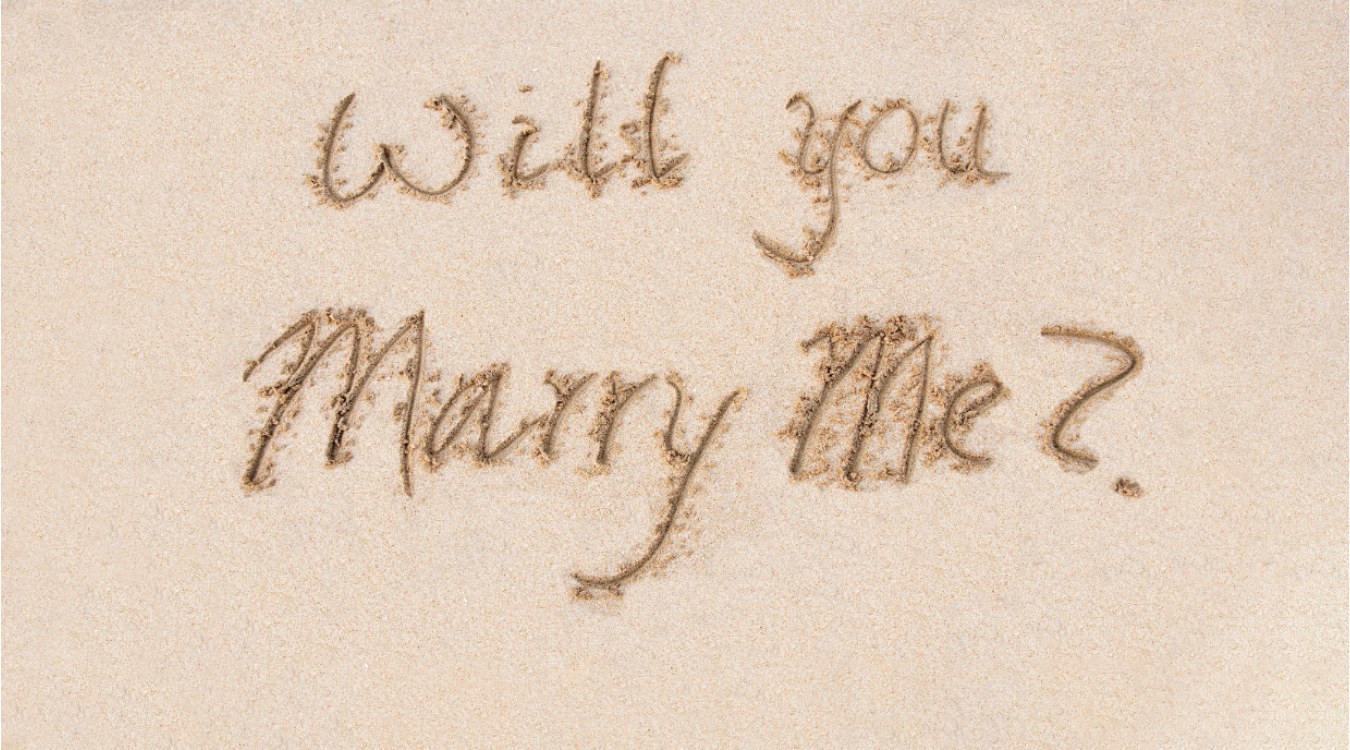 Will you
Marry Me?